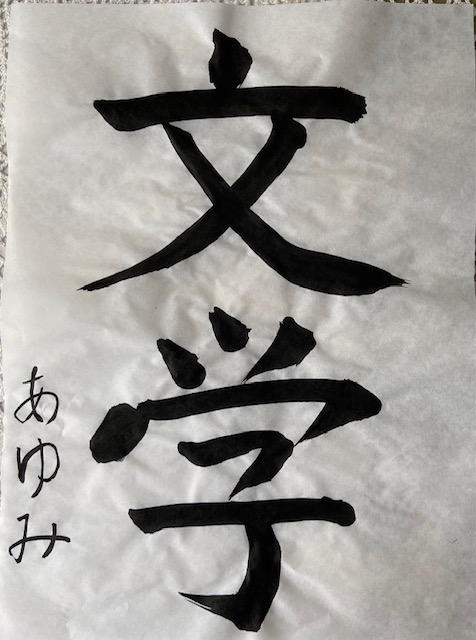 文学
あゆみ